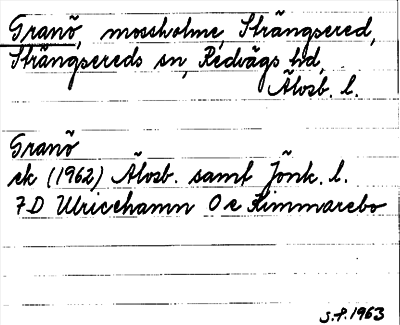 Granö, mossholme, Strängsered,
Strängsereds sn, Redvägs hd,
Älvsb. l.
Granö
ek (1962) Älvsb. samt Jönk. l.
7D Ulricehamn O e Kimmarebo
S.P. 1963